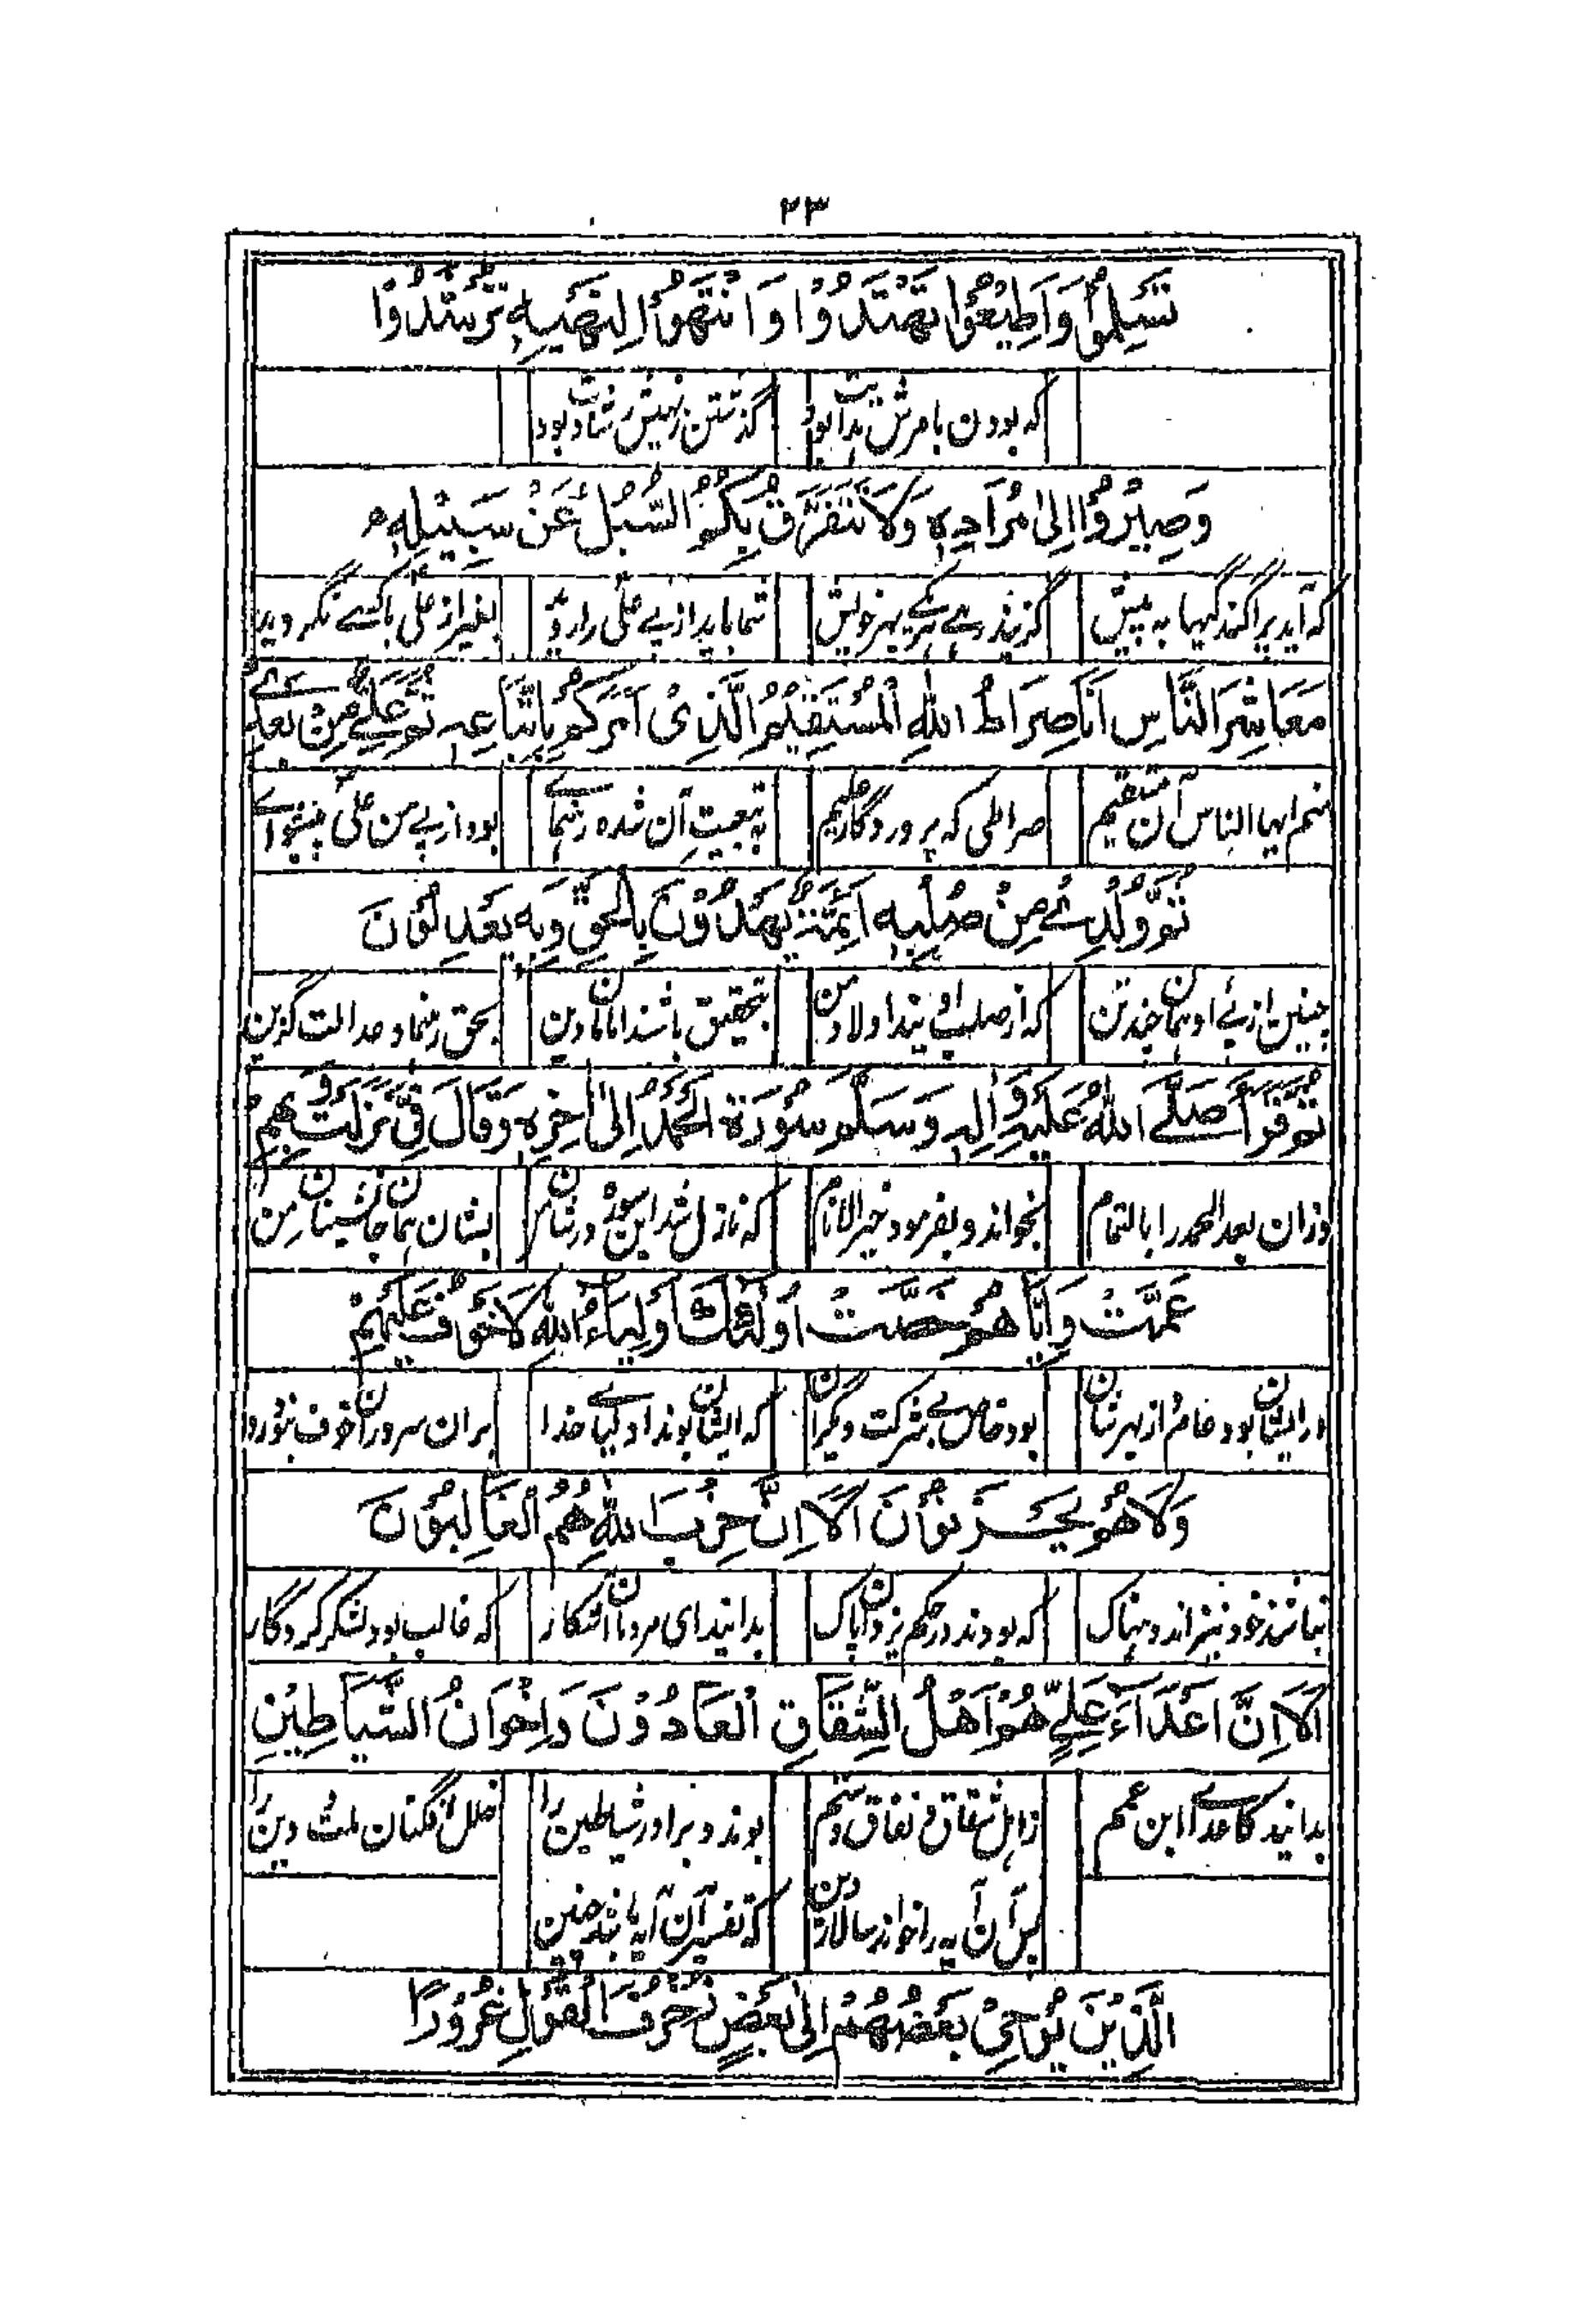 ۲۳
تَسْلَمُوْا وَاَطِيْعُوْا تَهْتَدُوْا وَانْتَهُوْا لِنَهْيِهٖ تَرْشُدُوْا
که بودن بامرش هدایت بود گذشتن ز نهیش رشادت بود
وَصِيْرُوْا اِلٰى مُرَادِهٖ وَلَا تَتَفَرَّقُ بِكُمُ السُّبُلُ عَنْ سَبِيْلِهٖ
که آید پراگندگیها به پیش گزینند رهے هر یکے بهر خویش شما باید از پے علی را روید بغیر از علی با کسے نگروید
مَعَاشِرَ النَّاسِ اَنَا صِرَاطُ اللهِ الْمُسْتَقِيْمُ الَّذِىْ اَمَرَكُمْ بِاتِّبَاعِهٖ ثُمَّ عَلِىٌّ مِنْ بَعْدِىْ
منم ایها الناس آن مستقیم صراطی که پروردگار علیم به تبعیت آن شده رهنماے بود از پے من علی پیشواے
ثُمَّ وُلْدِىْ مِنْ صُلْبِهٖ اَئِمَّةٌ يَهْدُوْنَ بِالْحَقِّ وَبِهٖ يَعْدِلُوْنَ
چنین از پئے او همان چند تن که از صلب اویند اولاد من بتحقیق باشند امامان دین بحق رهنما و عدالت گزین
ثُمَّ قَرَأَ صَلَّى اللهُ عَلَيْهِ وَاٰلِهٖ وَسَلَّمَ سُوْرَةَ الْحَمْدُ اِلٰى اٰخِرِهٖ وَقَالَ فِىَّ نَزَلَتْ وَفِيْهِمْ
وزان بعد الحمد را بالتمام بخواند و بفرمود خیر الانام که نازل شد این سوره در شان من بشان همان جانشینان من
عَمَّتْ وَاِيَّاهُمْ خَصَّتْ اُولٰئِكَ اَوْلِيَاءُ اللهِ لَا خَوْفٌ عَلَيْهِمْ
در ایشان بود عام از بهر شان بود خاص بے شرکت دیگران که ایشان بوند اولیاے خدا بران سروران خوف نبود روا
وَلَا هُمْ يَحْزَنُوْنَ اَلَا اِنَّ حِزْبَ اللهِ هُمُ الْغَالِبُوْنَ
نباشند خود نیز اندوهناک که بودند در حکم یزدان پاک بدانید ای مردمان آشکار که غالب بود لشکر کردگار
اَلَا اِنَّ اَعْدَاءَ عَلِىٍّ هُمْ اَهْلُ الشِّقَاقِ الْعَادُوْنَ وَاِخْوَانُ الشَّيَاطِيْنِ
بدانید کاعداے ابن عمم ز اهل شقاق و نفاق و ستم بوند و برادر شیاطین را خلل افگنان ملت و دین را
پس آن آیه را خواند سالار دین که تفسیر آن آیه باشد چنین
الَّذِيْنَ يُوْحِىْ بَعْضُهُمْ اِلٰى بَعْضٍ زُخْرُفَ الْقَوْلِ غُرُوْرًا